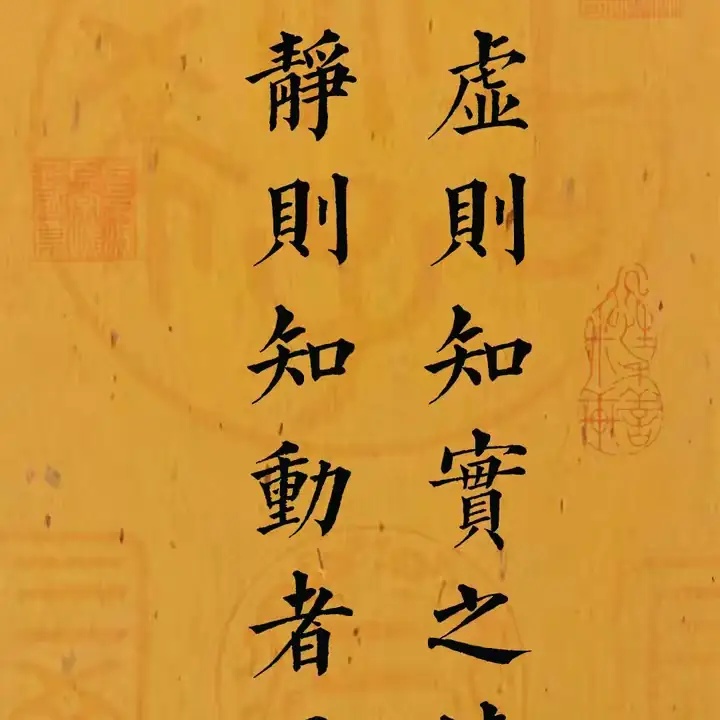 虛則知實之
靜則知動者